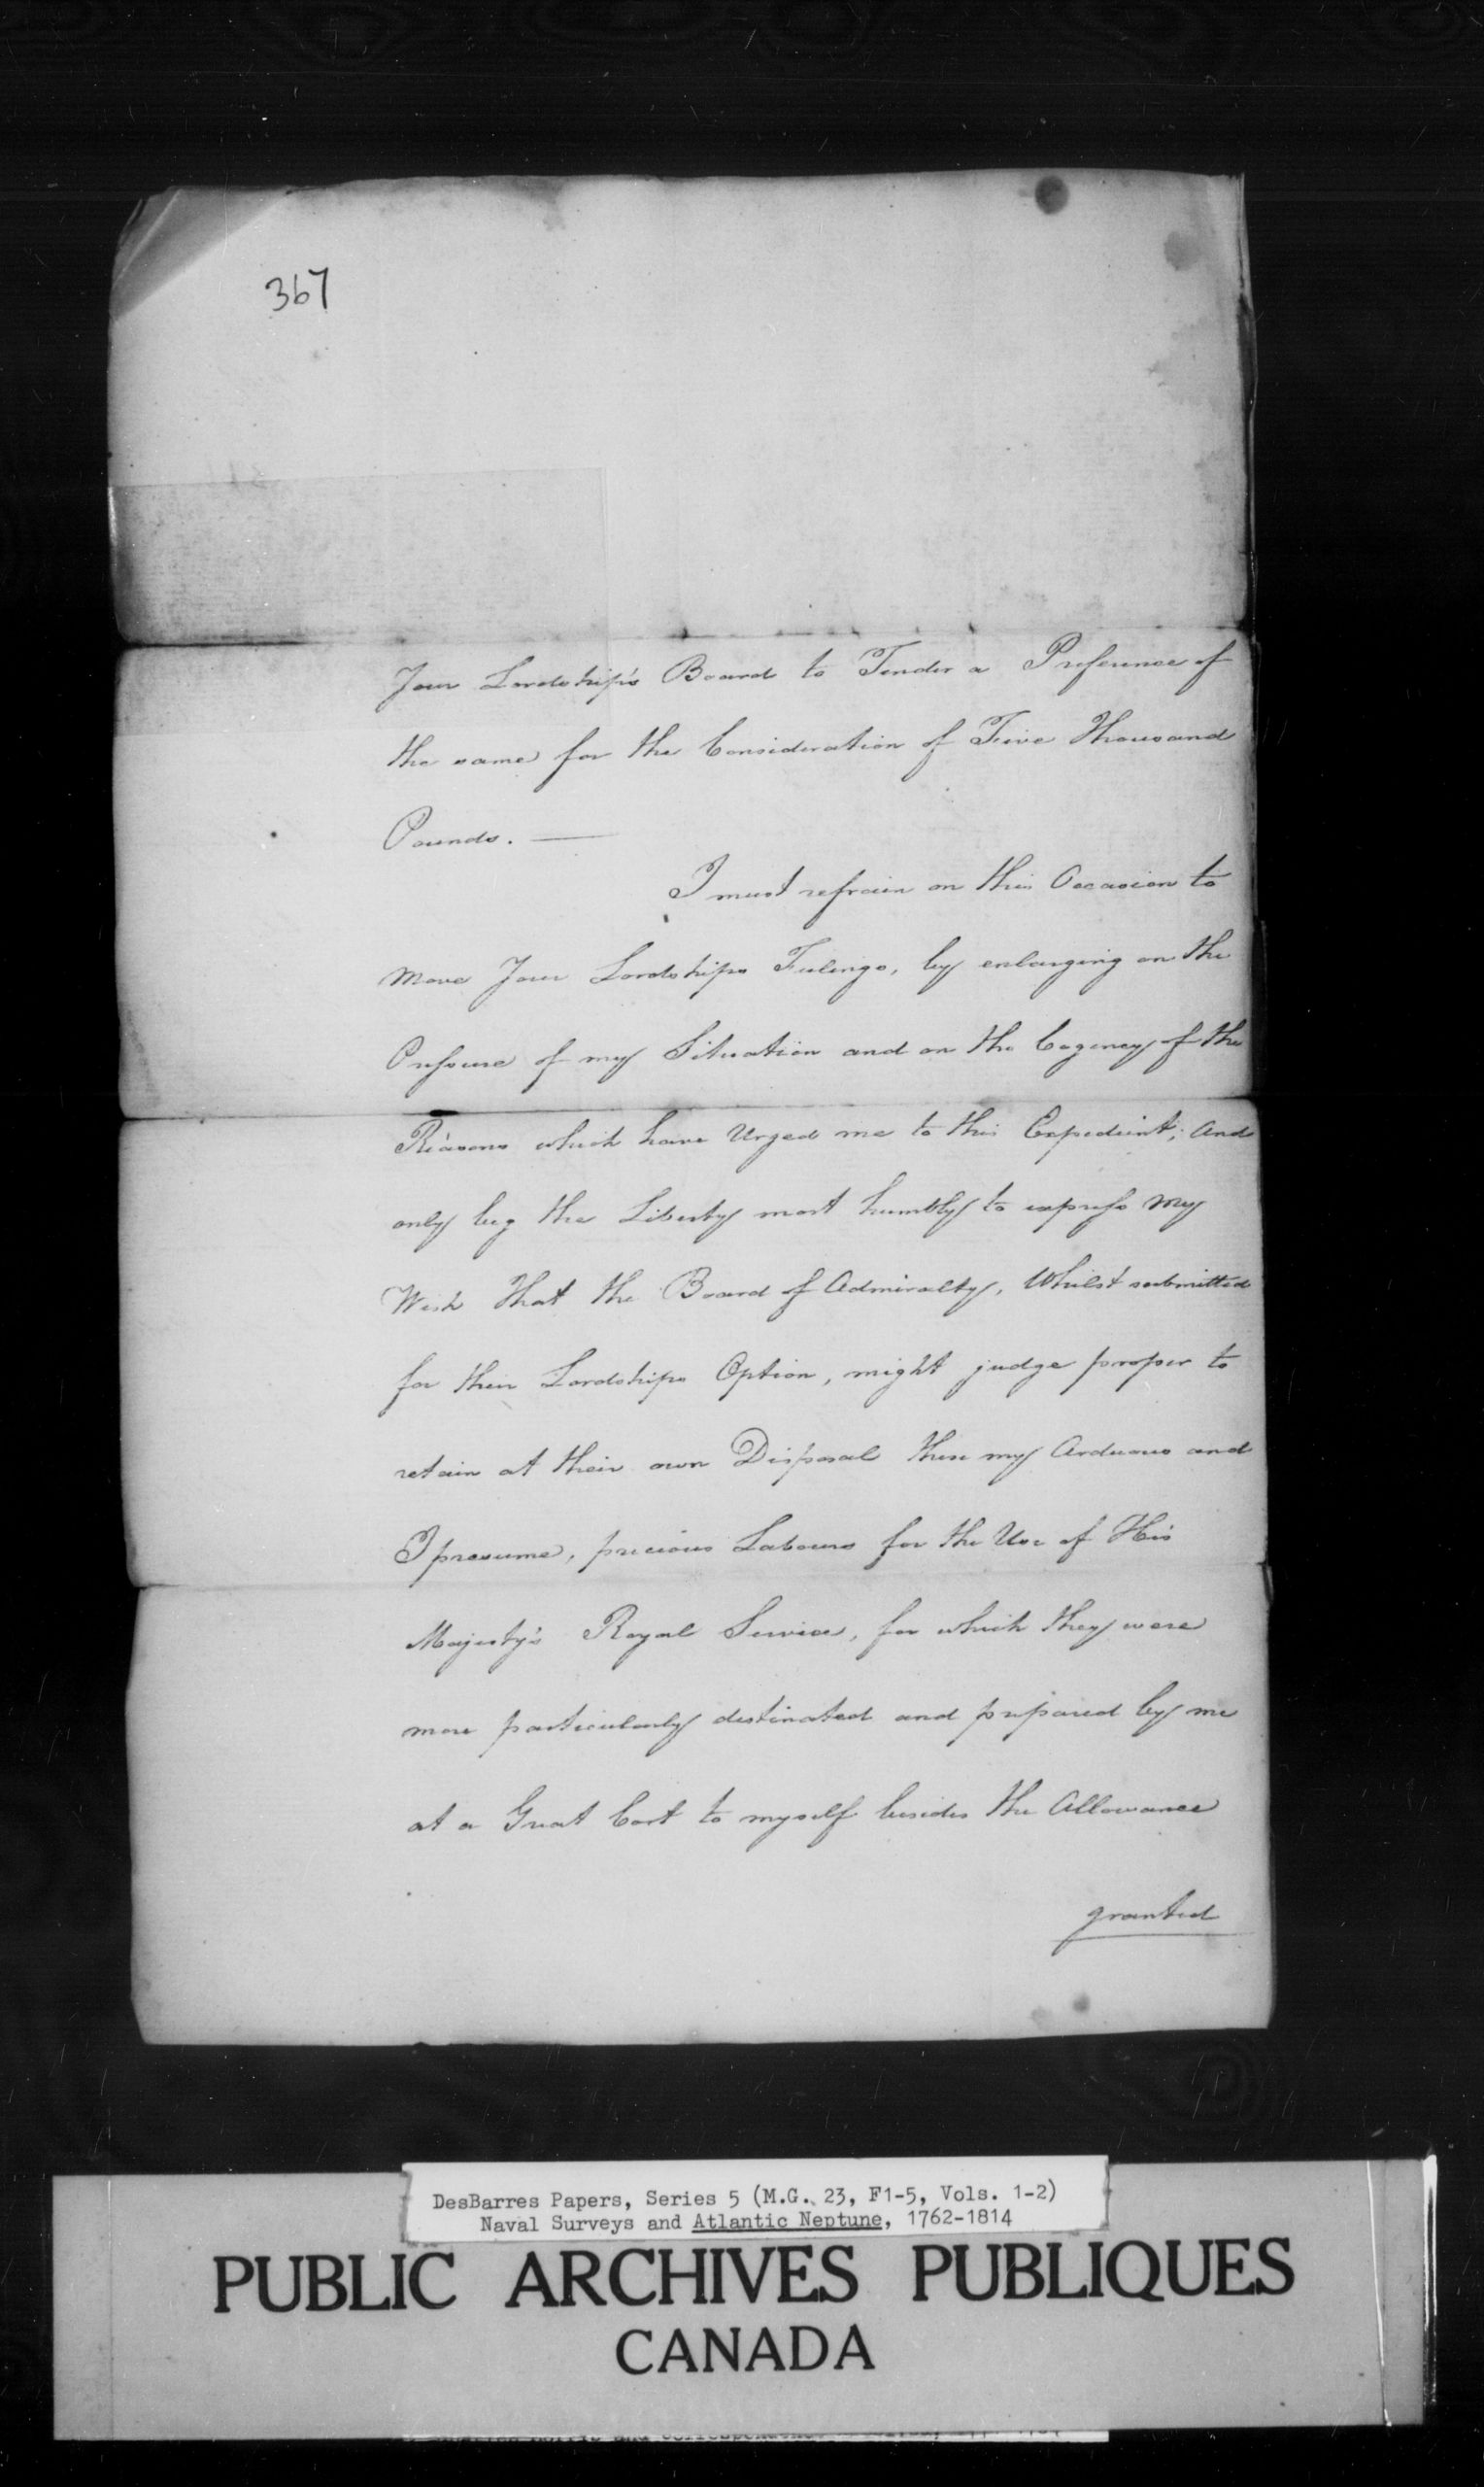 367
Your Lordship's Board to Tender a Preference of
the same for the Consideration of Five Thousand
Pounds. —
I must refrain on this Occasion to
Move Your Lordships Feelings, by enlarging on the
Pressure of my Situation and on the Cogency of the
Reasons which have Urged me to this Expedient; and
only beg the Liberty most humbly to express my
Wish that the Board of Admiralty, Whilst submitted
for their Lordships Option, might judge proper to
retain at their own Disposal these my Arduous and
I presume, precious Labours for the Use of His
Majesty's Royal Service, for which they were
more particularly destinated and prepared by me
at a Great Cost to myself besides the Allowance
granted
DesBarres Papers, Series 5 (M.G. 23, F1-5, Vols. 1-2)
Naval Surveys and Atlantic Neptune, 1762-1814
PUBLIC ARCHIVES PUBLIQUES
CANADA